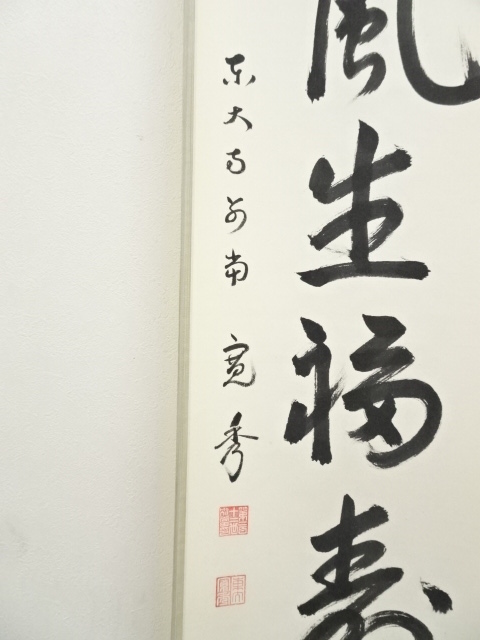 風生福寿
東大寺別當 寛秀